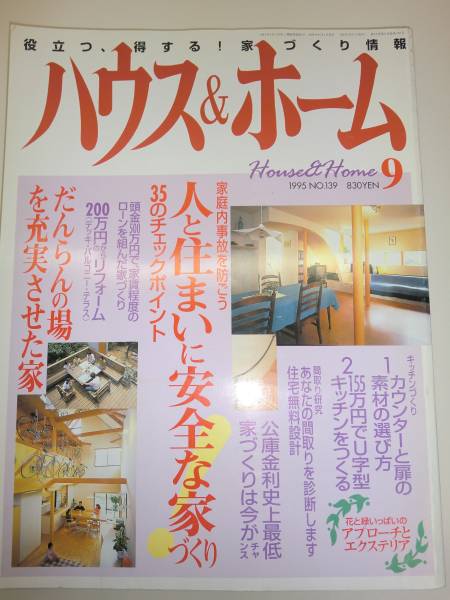 役立つ、得する!家づくり情報
ハウス&ホーム
House&Home 9
1995 NO.139 830YEN
家庭内事故を防ごう
人と住まいに安全な家づくり!
35のチェックポイント
頭金300万円で、家賃程度の
ローンを組んだ家づくり
200万円からのリフォーム
(デッキ・バルコニー・テラス)
だんらんの場
を充実させた家
キッチンづくり
1 カウンターと扉の
素材の選び方
2 155万円でU字型
キッチンをつくる
間取り研究
あなたの間取りを診断します
住宅無料設計
公庫金利史上最低
家づくりは今がチャンス
花と緑いっぱいの
アプローチと
エクステリア